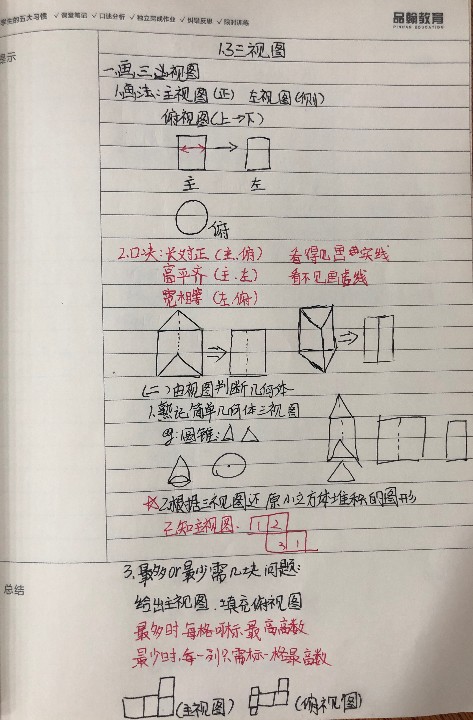 学生的五大习惯 ✓课堂笔记 ✓口述分析 ✓独立完成作业 ✓纠错反思 ✓限时训练
品翰教育
PINHAN EDUCATION
提示
1.3三视图
一.画三边视图
1.画法:主视图(正) 左视图(侧)
俯视图(上→下)
主 左
俯
2.口决:长对正(主.俯) 看得见画实线
高平齐(主.左) 看不见画虚线
宽相等(左.俯)
(二)由视图判断几何体
1.熟记简单几何体三视图
圆锥:
☆2.根据三视图还原小立方体堆积的图形
已知主视图.
1 2
3 1
3.最多or最少需几块问题:
总结
给出主视图.填充俯视图
最多时,每格可标最高层数
最少时,每一列只需标一格最高数
(主视图) (俯视图)